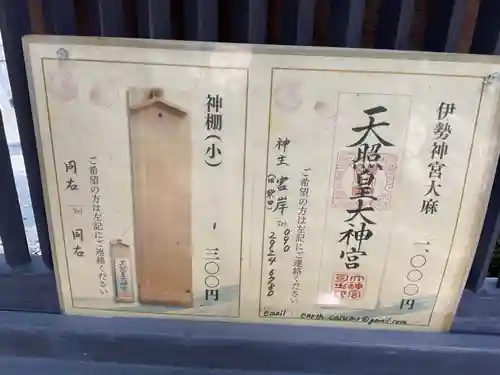 伊勢神宮大麻
一、〇〇〇円
天照皇大神宮
ご希望の方は左記にご連絡ください
神主 宮岸
Tel 090
2924 6780
email earth
@gmail.com
神棚（小）
一三〇〇円
ご希望の方は左記にご連絡ください
同右
Tel 同右